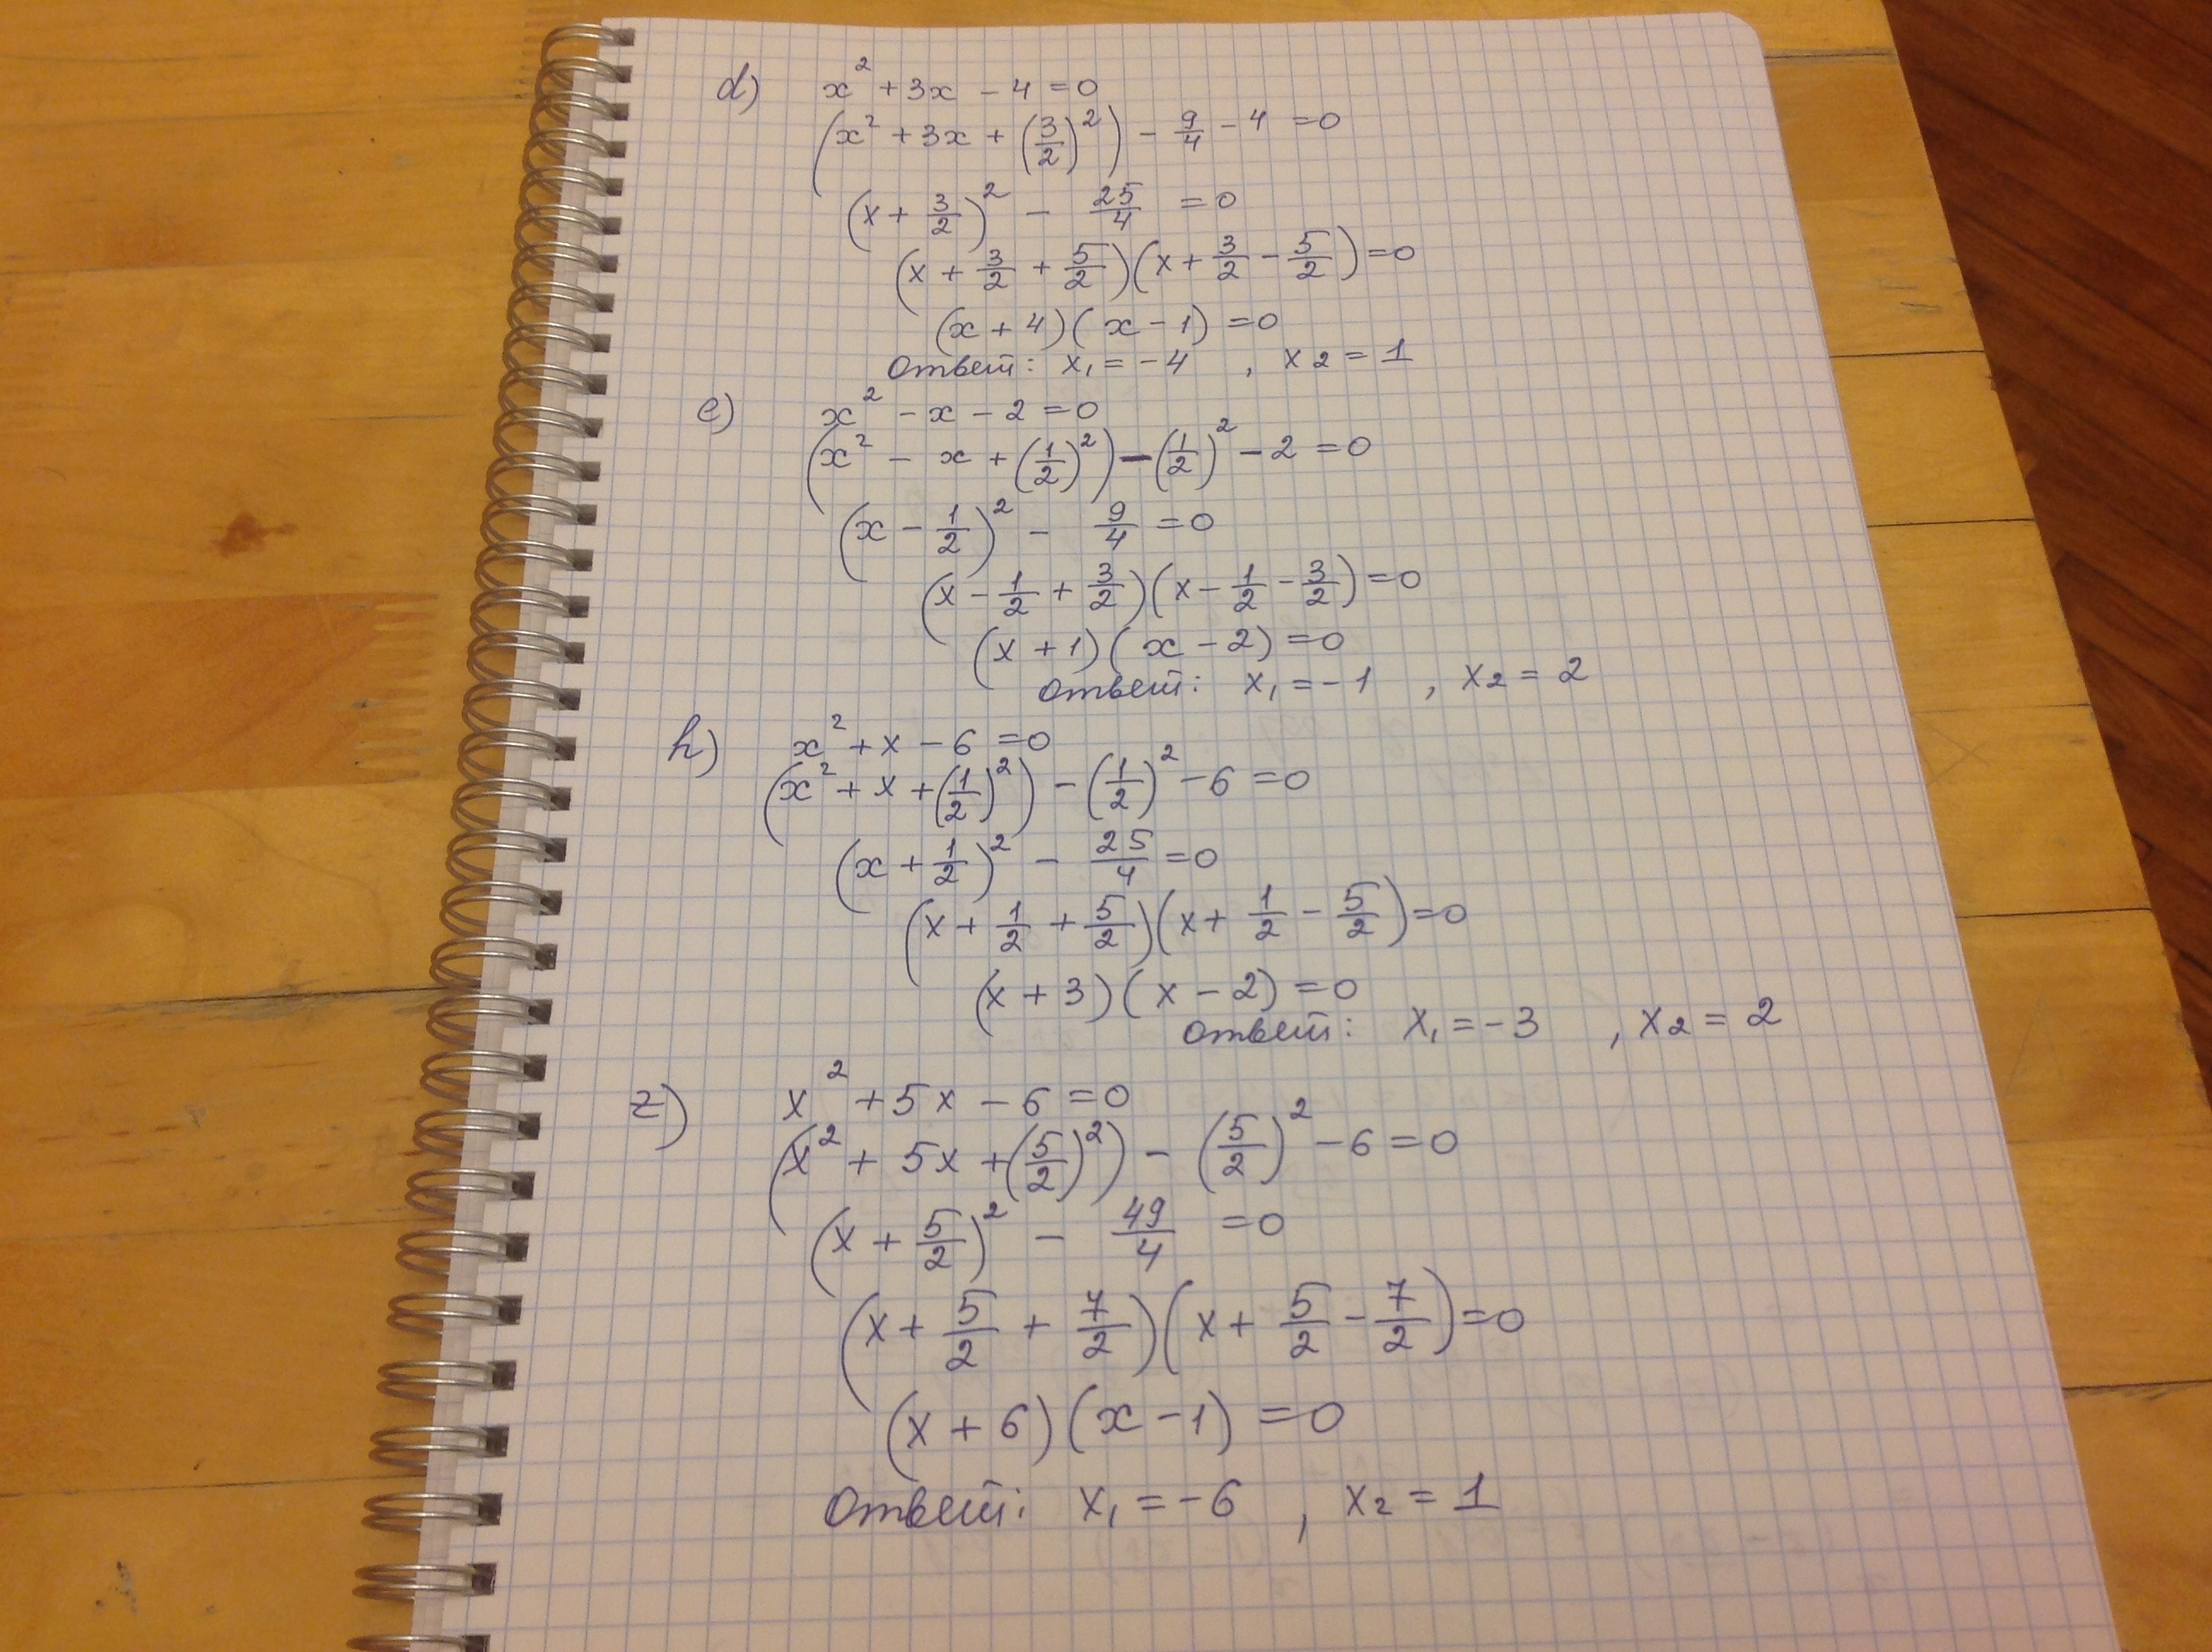 d) x² + 3x - 4 = 0
(x² + 3x + (3/2)²) - 9/4 - 4 = 0
(x + 3/2)² - 25/4 = 0
(x + 3/2 + 5/2)(x + 3/2 - 5/2) = 0
(x + 4)(x - 1) = 0
Ответ: x₁ = -4 , x₂ = 1
e) x² - x - 2 = 0
(x² - x + (1/2)²) - (1/2)² - 2 = 0
(x - 1/2)² - 9/4 = 0
(x - 1/2 + 3/2)(x - 1/2 - 3/2) = 0
(x + 1)(x - 2) = 0
Ответ: x₁ = -1 , x₂ = 2
h) x² + x - 6 = 0
(x² + x + (1/2)²) - (1/2)² - 6 = 0
(x + 1/2)² - 25/4 = 0
(x + 1/2 + 5/2)(x + 1/2 - 5/2) = 0
(x + 3)(x - 2) = 0
Ответ: x₁ = -3 , x₂ = 2
z) x² + 5x - 6 = 0
(x² + 5x + (5/2)²) - (5/2)² - 6 = 0
(x + 5/2)² - 49/4 = 0
(x + 5/2 + 7/2)(x + 5/2 - 7/2) = 0
(x + 6)(x - 1) = 0
Ответ: x₁ = -6 , x₂ = 1